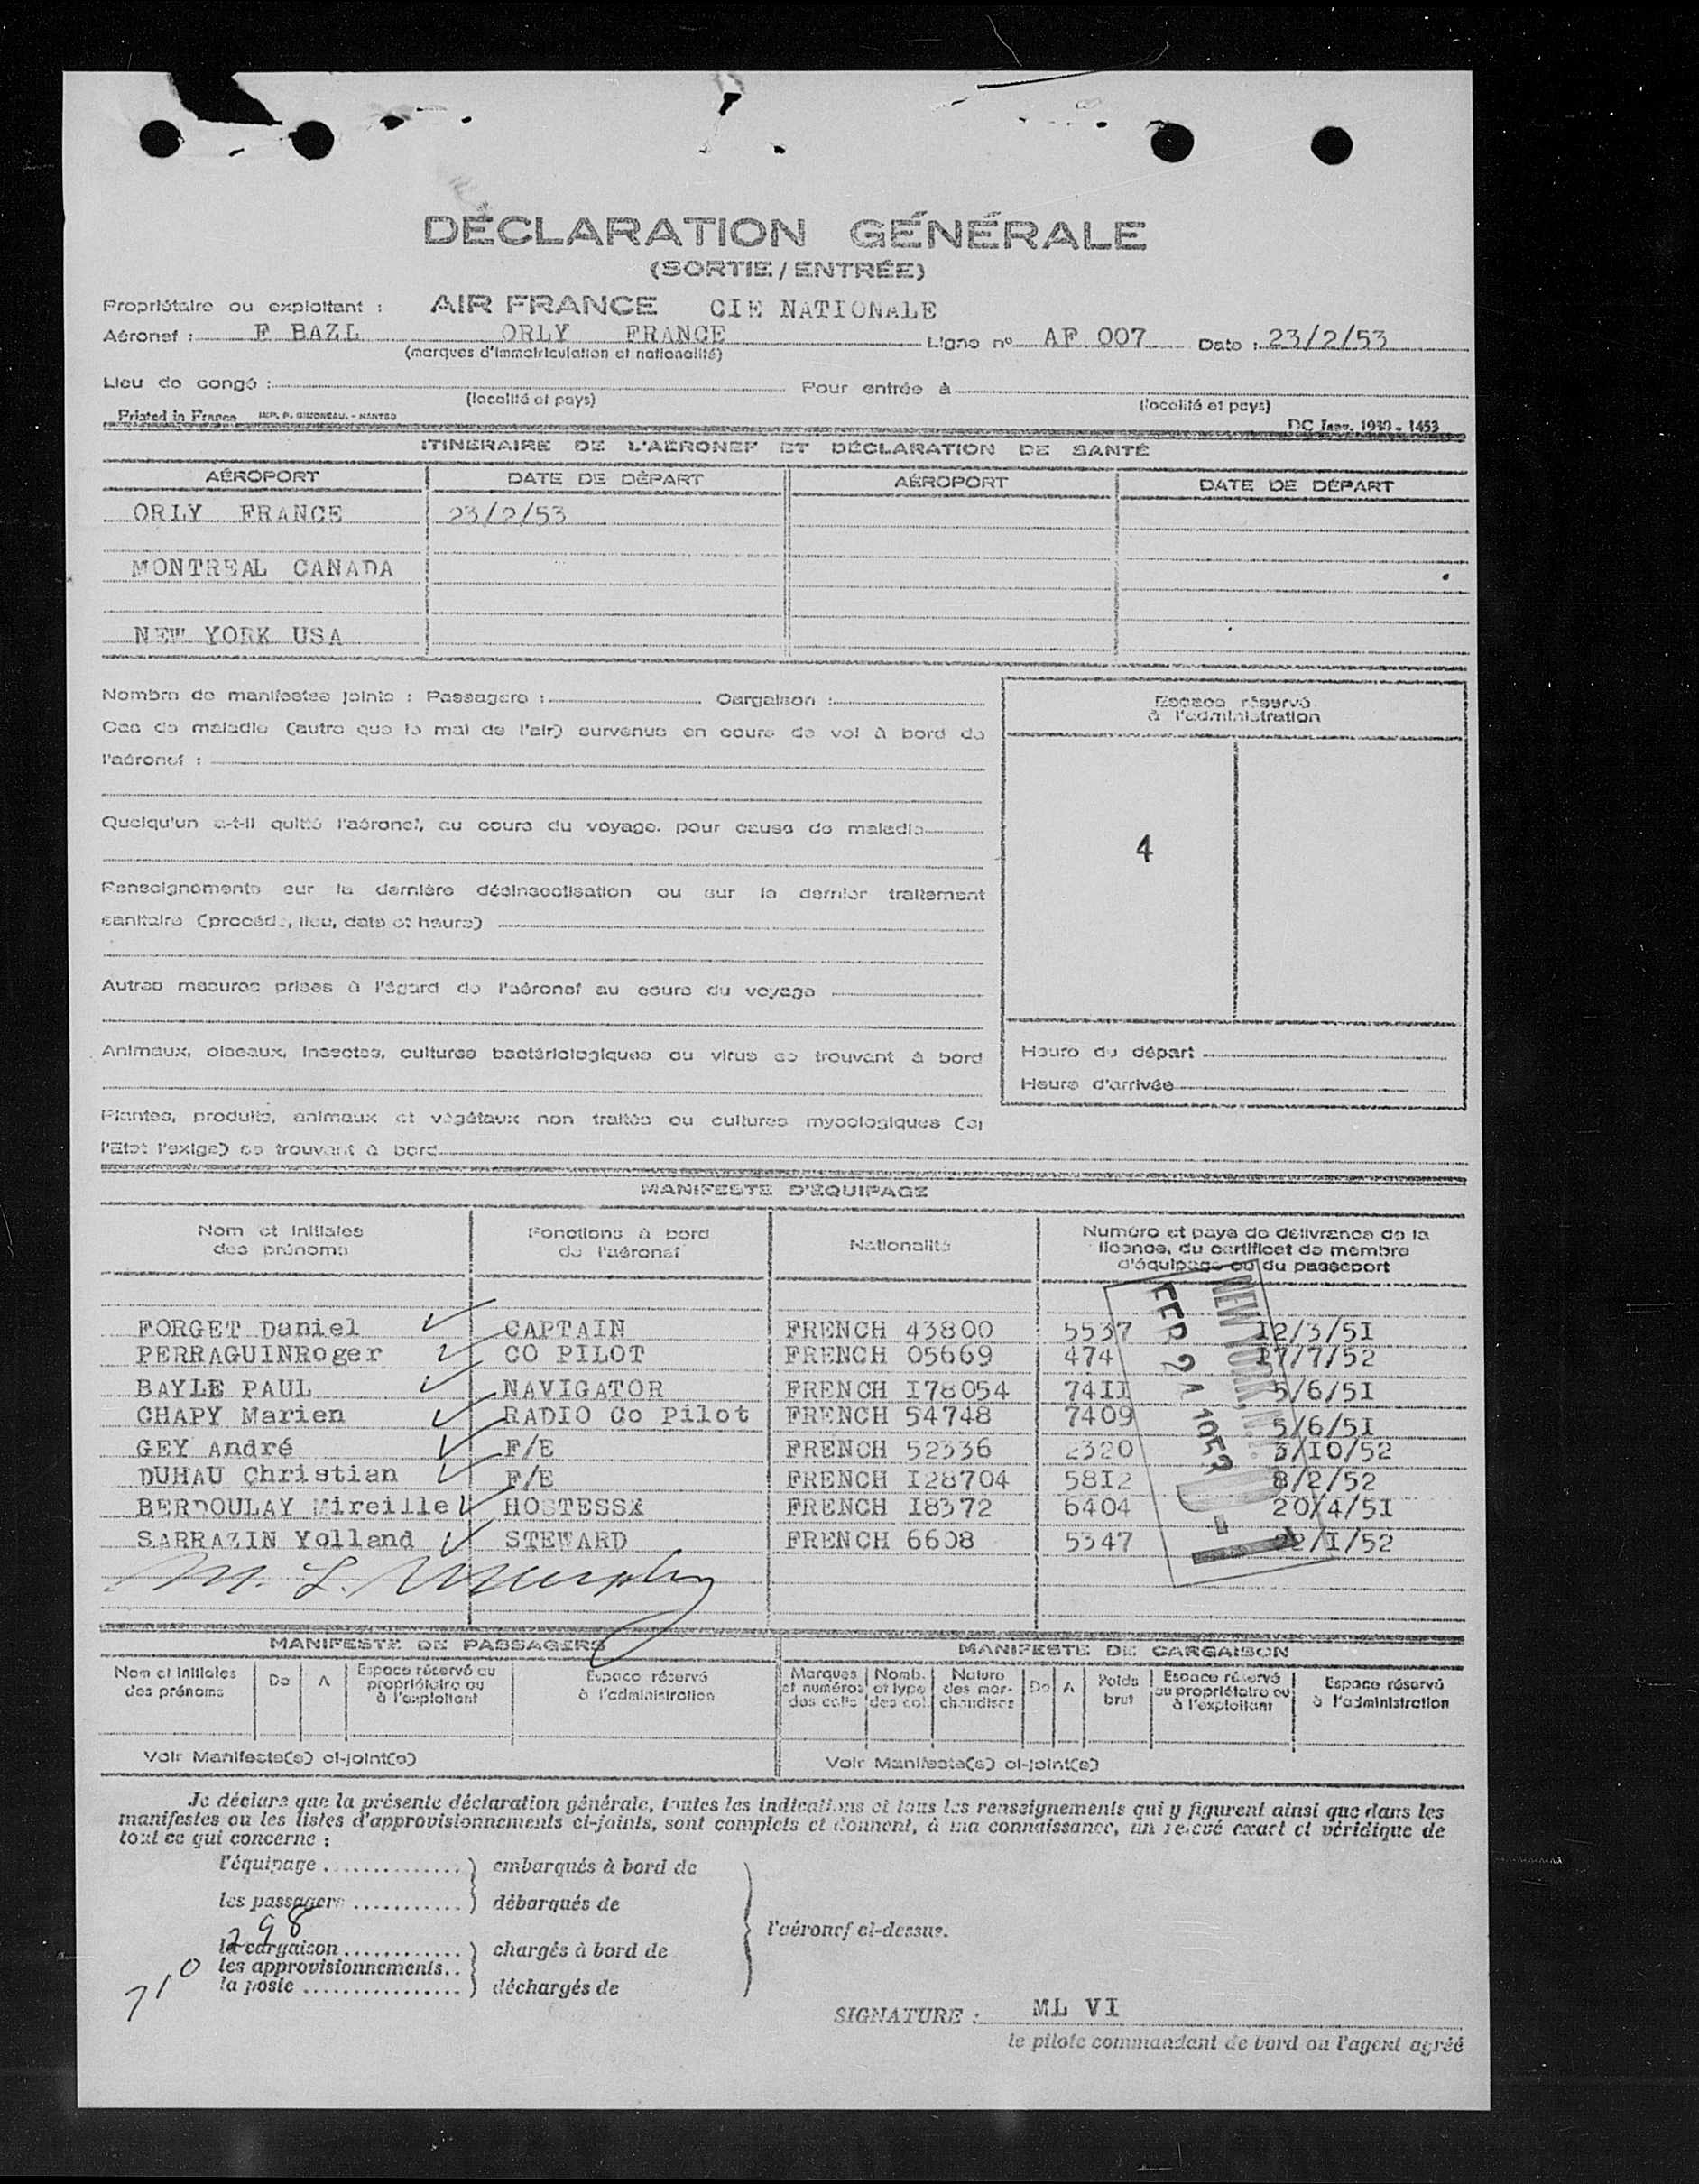 DÉCLARATION GÉNÉRALE
(SORTIE / ENTRÉE)
Propriétaire ou exploitant : AIR FRANCE CIE NATIONALE
Aéronef : F BAZL ORLY FRANCE Ligne nº AF 007 Date : 23/2/53
(marques d'immatriculation et nationalité)
Lieu de congé : Pour entrée à
(localité et pays) (localité et pays)
Printed in France IMP. P. GIMONEAU. - NANTES DC Janv. - 1453
ITINÉRAIRE DE L'AÉRONEF ET DÉCLARATION DE SANTÉ
AÉROPORT DATE DE DÉPART AÉROPORT DATE DE DÉPART
ORLY FRANCE 23/2/53
MONTREAL CANADA
NEW YORK USA
Nombre de manifestes joints : Passagers : Cargaison :
Espace réservé
à l'administration
Cas de maladie (autre que le mal de l'air) survenus en cours de vol à bord de
l'aéronef :
Quelqu'un a-t-il quitté l'aéronef, au cours du voyage, pour cause de maladie
4
Renseignements sur la dernière désinsectisation ou sur le dernier traitement
sanitaire (procédé, lieu, date et heure)
Autres mesures prises à l'égard de l'aéronef au cours du voyage
Animaux, oiseaux, insectes, cultures bactériologiques ou virus se trouvant à bord
Heure du départ
Heure d'arrivée
Plantes, produits, animaux et végétaux non traités ou cultures mycologiques (si
l'Etat l'exige) se trouvant à bord
MANIFESTE D'ÉQUIPAGE
Nom et initiales des prénoms Fonctions à bord de l'aéronef Nationalité Numéro et pays de délivrance de la licence, du certificat de membre d'équipage ou du passeport
NEW YORK, N.
FEB 24 1953
FORGET Daniel CAPTAIN FRENCH 43800 5537 I2/3/5I
PERRAGUINRoger CO PILOT FRENCH 05669 474 I7/7/52
BAYLE PAUL NAVIGATOR FRENCH I78054 74II 5/6/5I
CHAPY Marien RADIO Co Pilot FRENCH 54748 7409 5/6/5I
GEY André F/E FRENCH 52336 2320 3/IO/52
DUHAU Christian F/E FRENCH I28704 58I2 8/2/52
BERDOULAY Mireille HOSTESSX FRENCH I8372 6404 20/4/5I
SARRAZIN Yolland STEWARD FRENCH 6608 5347 22/I/52
M. L. Murphy
MANIFESTE DE PASSAGERS MANIFESTE DE CARGAISON
Nom et initiales des prénoms De A Espace réservé au propriétaire ou à l'exploitant Espace réservé à l'administration Marques et numéros des colis Nomb. et type des col. Nature des marchandises De A Poids brut Espace réservé au propriétaire ou à l'exploitant Espace réservé à l'administration
Voir Manifeste(s) ci-joint(s) Voir Manifeste(s) ci-joint(s)
Je déclare que la présente déclaration générale, toutes les indications et tous les renseignements qui y figurent ainsi que dans les
manifestes ou les listes d'approvisionnements ci-joints, sont complets et donnent, à ma connaissance, un relevé exact et véridique de
tout ce qui concerne :
l'équipage .............. ) embarqués à bord de
les passagers ........... ) débarqués de
l'aéronef ci-dessus.
298
la cargaison ............ ) chargés à bord de
les approvisionnements..
710
la poste ................ ) déchargés de
SIGNATURE : ML VI
le pilote commandant de bord ou l'agent agréé